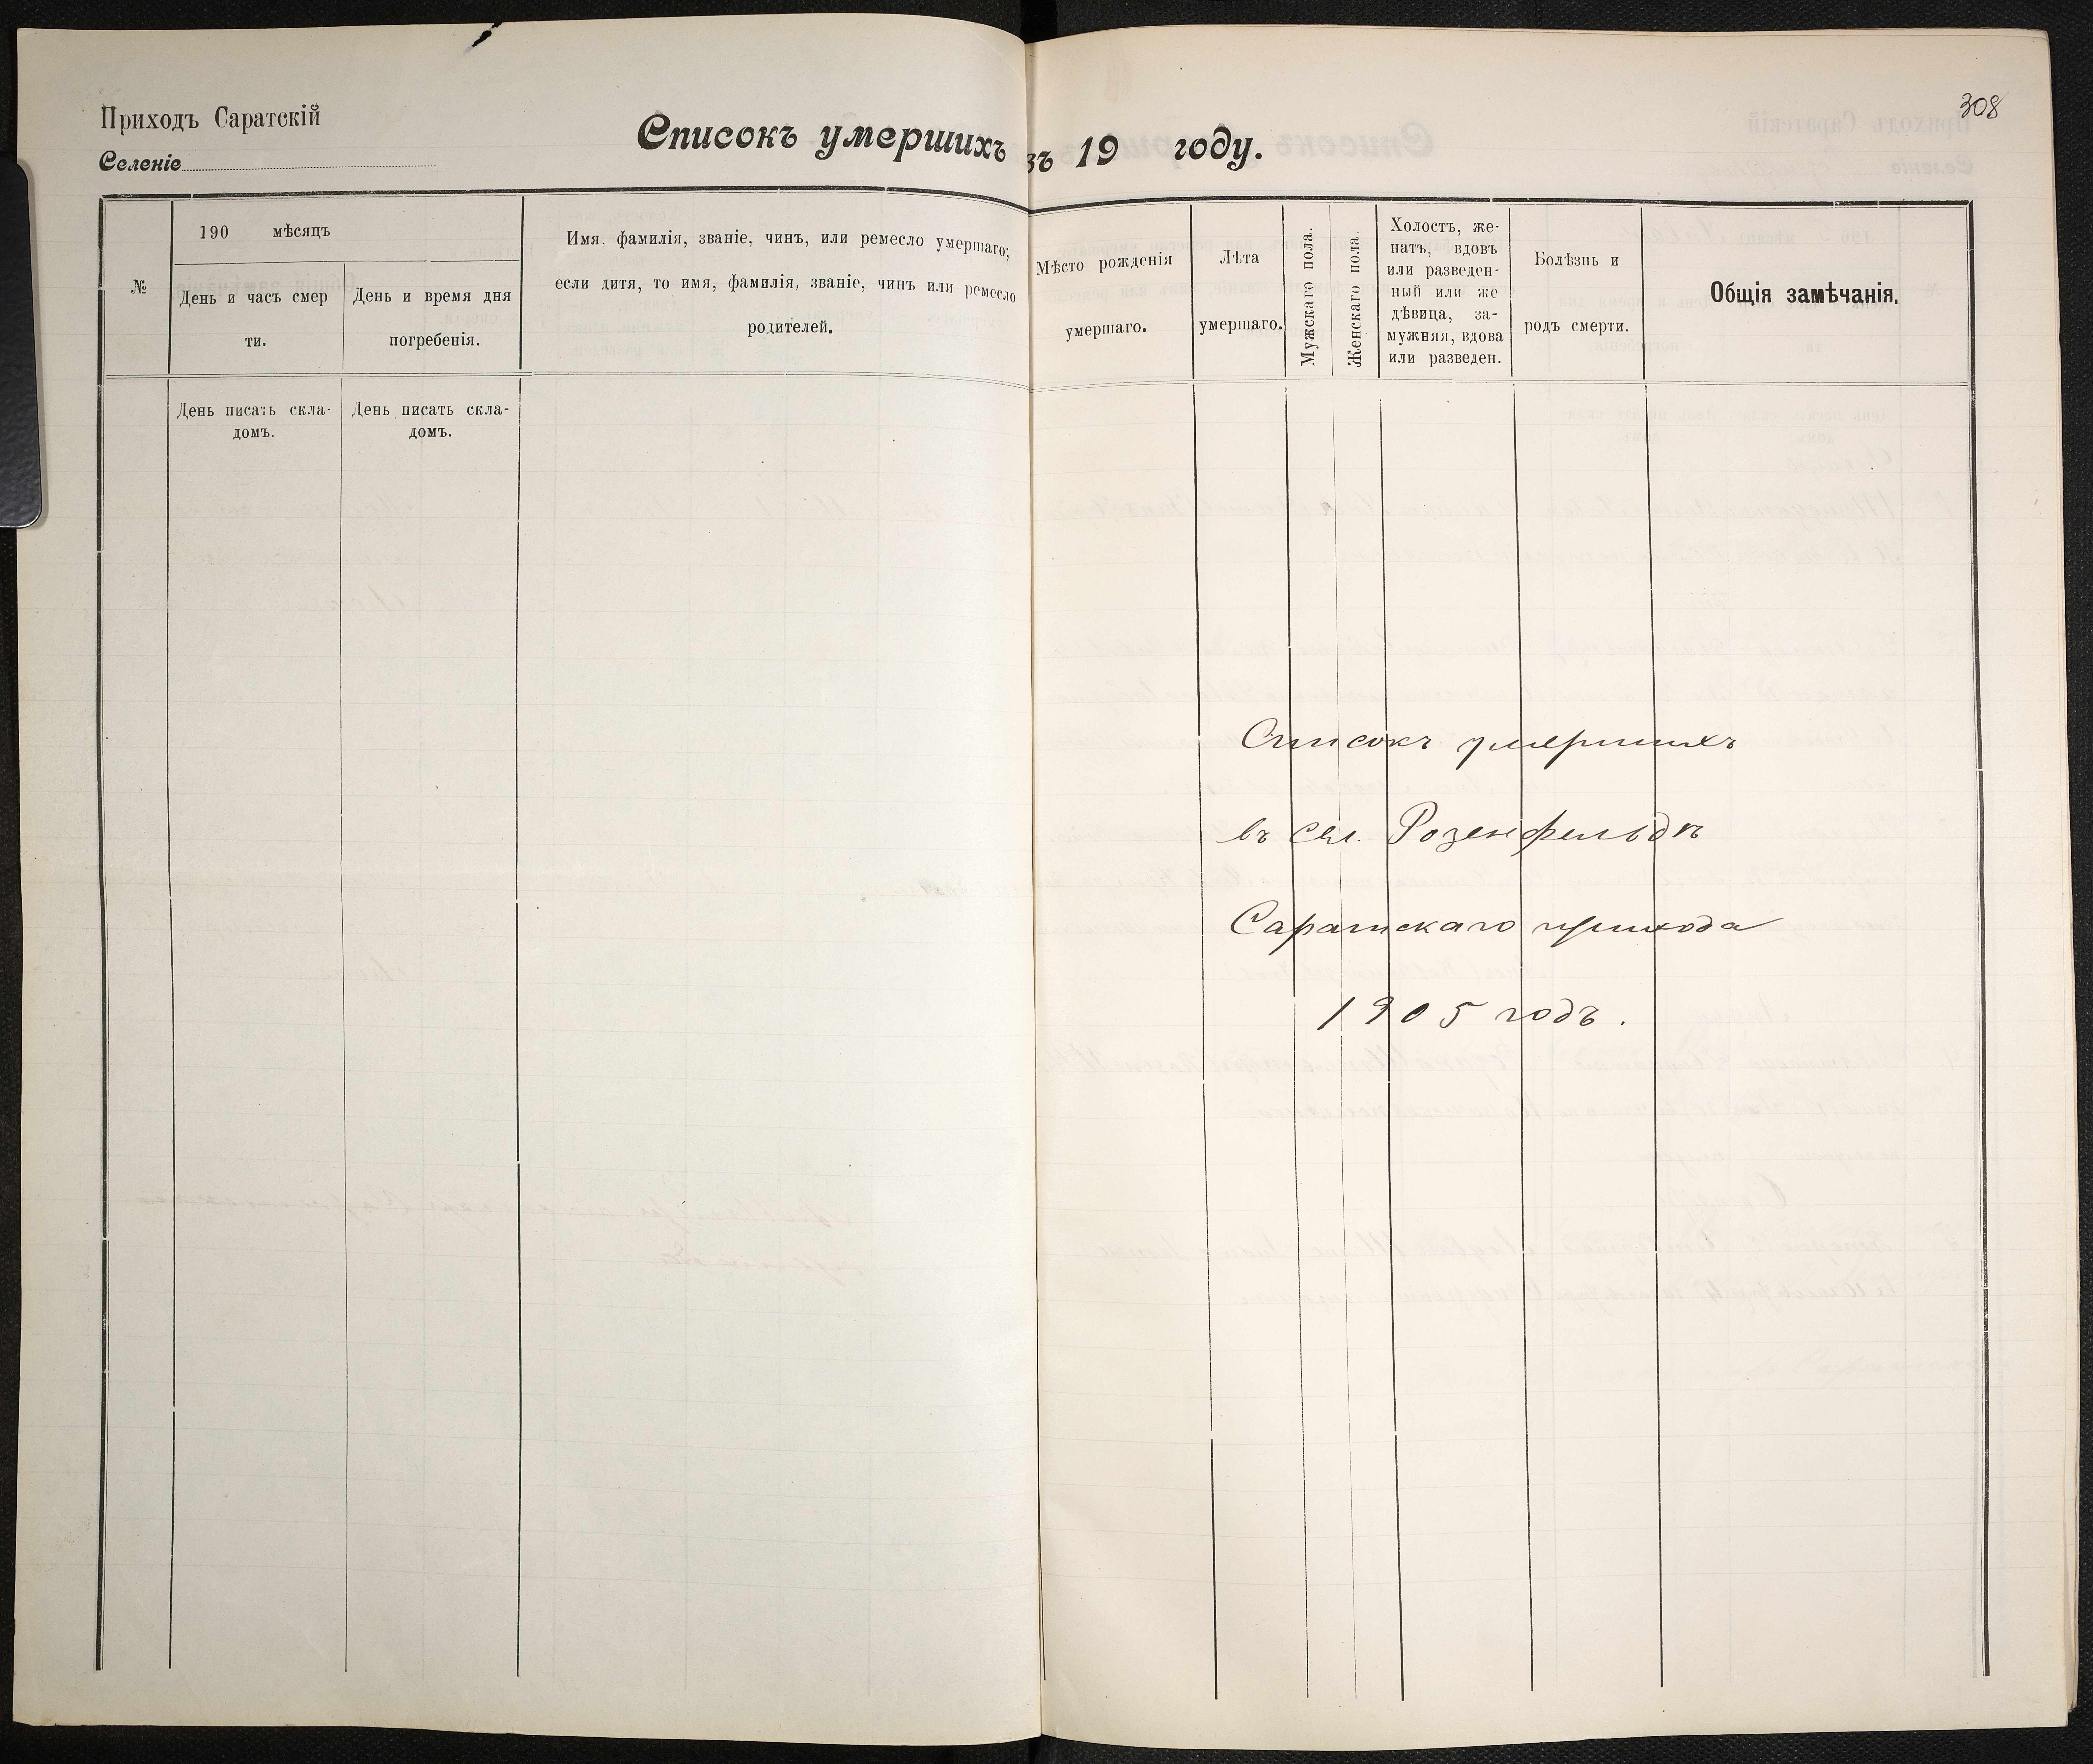 308
Приходъ Саратскій
Селеніе
Списокъ умершихъ въ 19 году.
№
190 мѣсяцъ
День и часъ смер
ти.
День и время дня
погребенія.
Имя, фамилія, званіе, чинъ, или ремесло умершаго;
если дитя, то имя, фамилія, званіе, чинъ или ремесло
родителей.
Мѣсто рожденія
умершаго.
Лѣта
умершаго.
Мужскаго пола.
Женскаго пола.
Холостъ, же-
натъ, вдовъ
или разведен-
ный или же
дѣвица, за-
мужняя, вдова
или разведен.
Болѣзнь и
родъ смерти.
Общія замѣчанія.
День писать скла-
домъ.
День писать скла-
домъ.
Списокъ умершихъ
въ сел. Розенфельдѣ
Саратскаго прихода
1905 годъ.